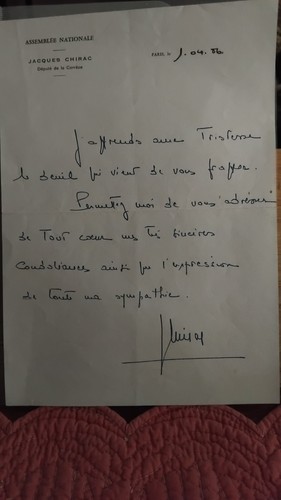 ASSEMBLÉE NATIONALE
JACQUES CHIRAC
Député de la Corrèze
PARIS, le 1.04.86
J'apprends avec Tristesse
le deuil qui vient de vous frapper.
Permettez moi de vous adresser
de tout cœur mes très sincères
condoléances ainsi que l'expression
de toute ma sympathie.